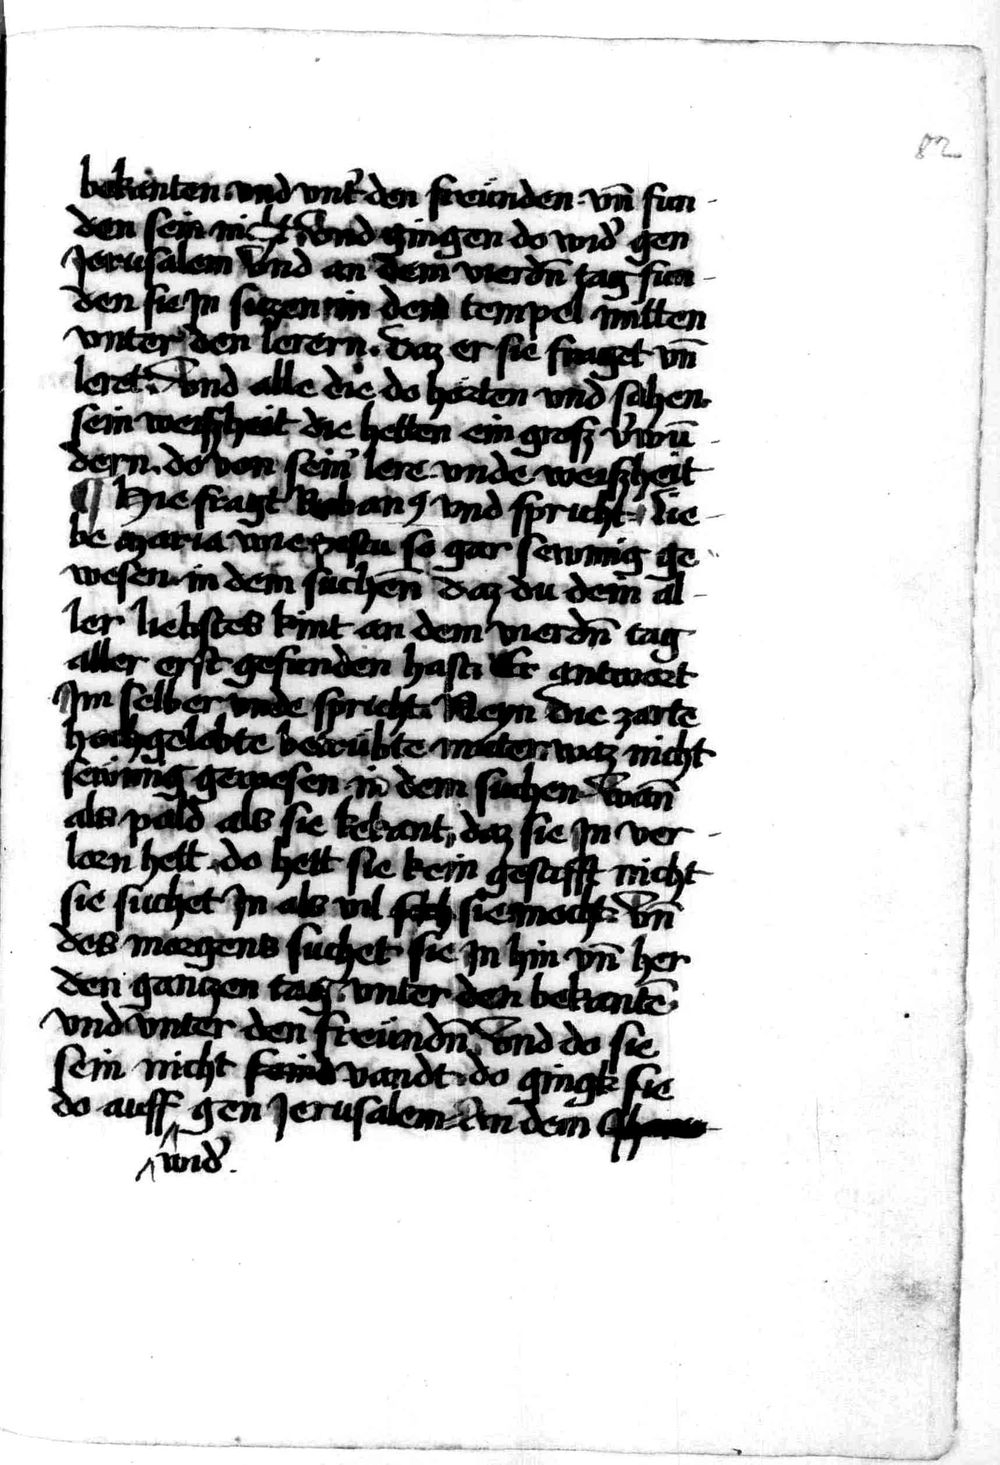 82
bekanten vnd vnt̉ den freünden vn̄ fun-
den sein nicht Vnd gingen do wid̉ gen
Jerusalem Vnd an dem vierdn̄ tag fun-
den sie Jn siczen in dem tempel mitten
vnter den lerern. Daz er sie fraget vn̄
leret. Vnd alle die do hörten vnd sahen
sein weiszheit die hetten ein grosz v̉wū-
dern. do von sein̉ lere vnde weiszheit
¶ Hie fragt Rabanꝰ vnd spricht lie-
be maria wie pistu so gar sewmig ge
wesen in dem suchen̄ daz du dein al-
ler liebstes kint an dem vierdn̄ tag
aller erst gefunden hast Er antwort
Jm selber vnde spricht Neyn die zarte
hochgelobte betrübte muter waz nicht
sewmig gewesen in dem suchen wan̄
als pald als sie bekant daz sie Jn ver-
lorn hett do hett sie kein nicht
sie suchet Jn als vil sie mocht vn̄
des morgens suchet sie Jn hin vn̄ her
den ganczen tag vnter den bekantē
vnd vnter den freündn̄ Vnd do sie
sein nicht vandt do gingk sie
do auff gen Jerusalem An dem
wid̉